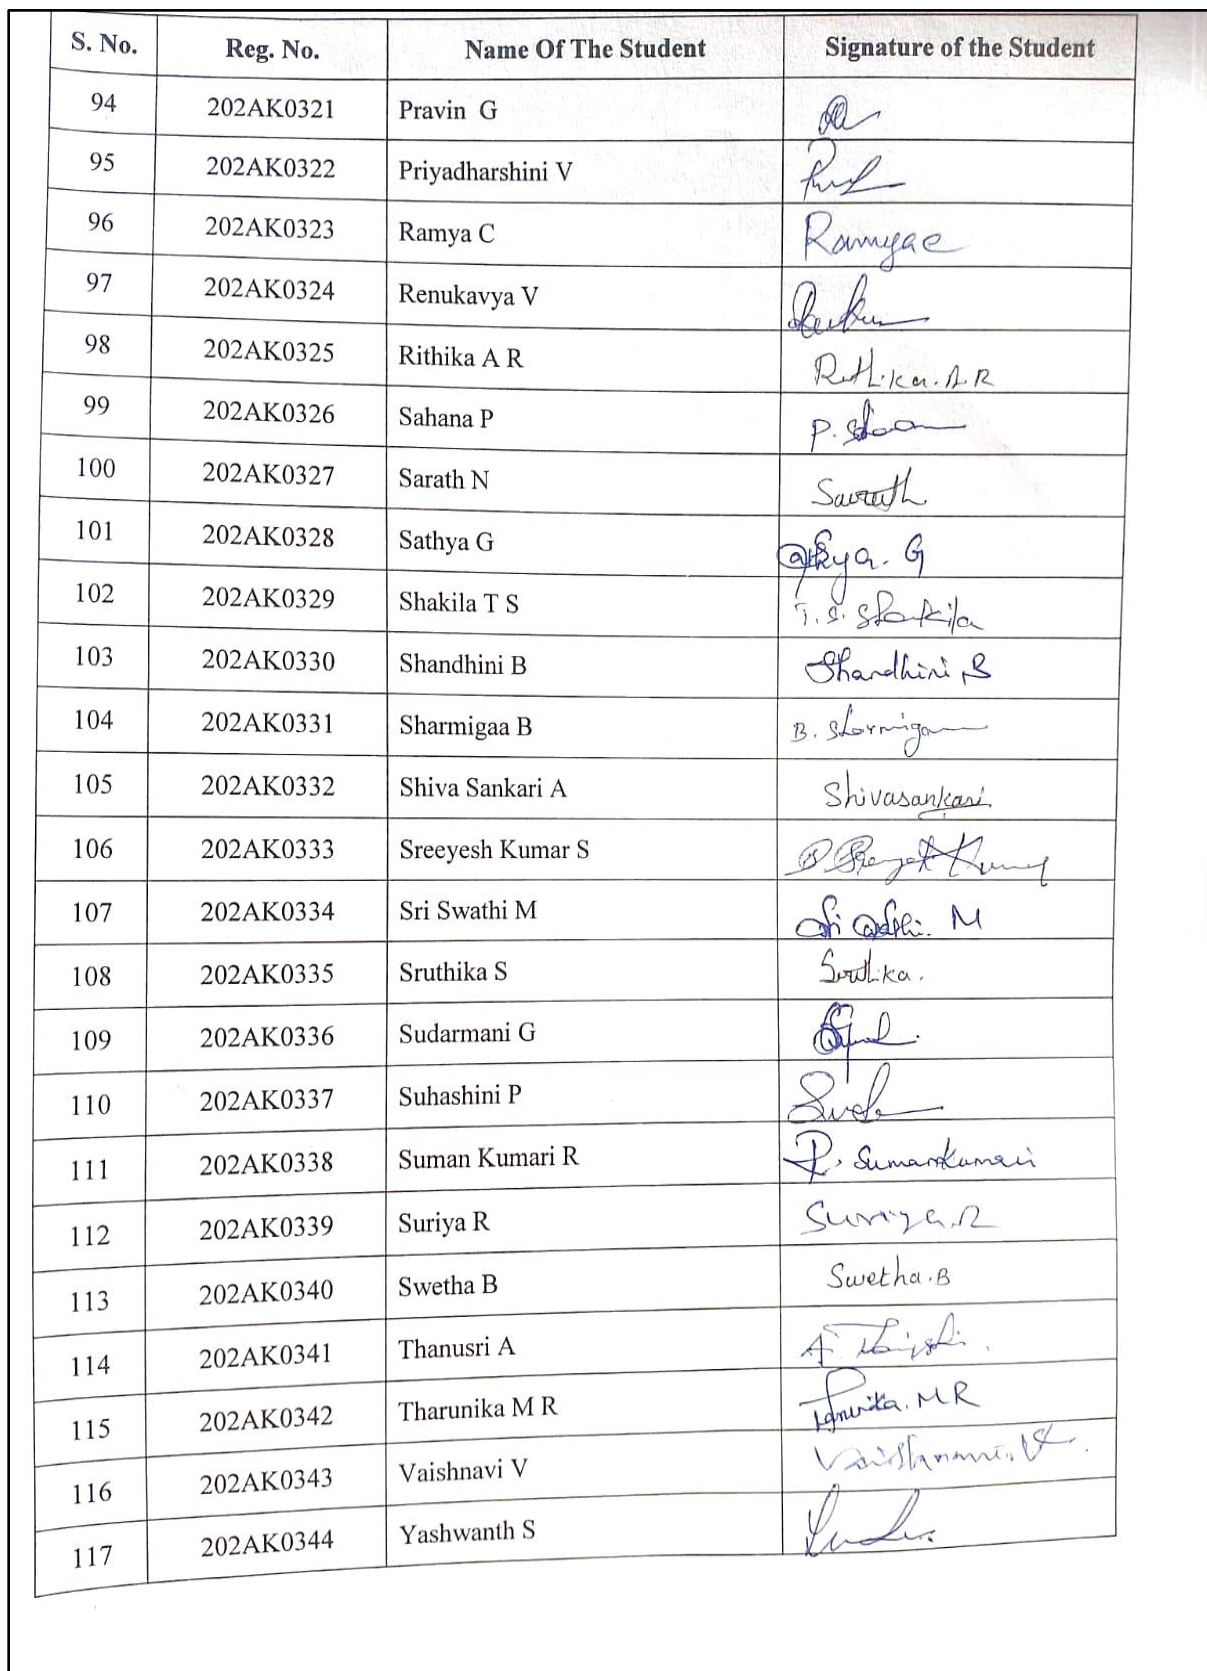 S. No. Reg. No. Name Of The Student Signature of the Student
94 202AK0321 Pravin G
95 202AK0322 Priyadharshini V
96 202AK0323 Ramya C Ramya C
97 202AK0324 Renukavya V
98 202AK0325 Rithika A R Rithika. A. R
99 202AK0326 Sahana P
100 202AK0327 Sarath N Sarath
101 202AK0328 Sathya G
102 202AK0329 Shakila T S T. S. Shakila
103 202AK0330 Shandhini B Shandhini B
104 202AK0331 Sharmigaa B B. Sharmigaa
105 202AK0332 Shiva Sankari A Shivasankari
106 202AK0333 Sreeyesh Kumar S
107 202AK0334 Sri Swathi M
108 202AK0335 Sruthika S Sruthika.
109 202AK0336 Sudarmani G
110 202AK0337 Suhashini P
111 202AK0338 Suman Kumari R R. Sumankumari
112 202AK0339 Suriya R Suriya. R
113 202AK0340 Swetha B Swetha. B
114 202AK0341 Thanusri A
115 202AK0342 Tharunika M R
116 202AK0343 Vaishnavi V Vaishnavi. V
117 202AK0344 Yashwanth S